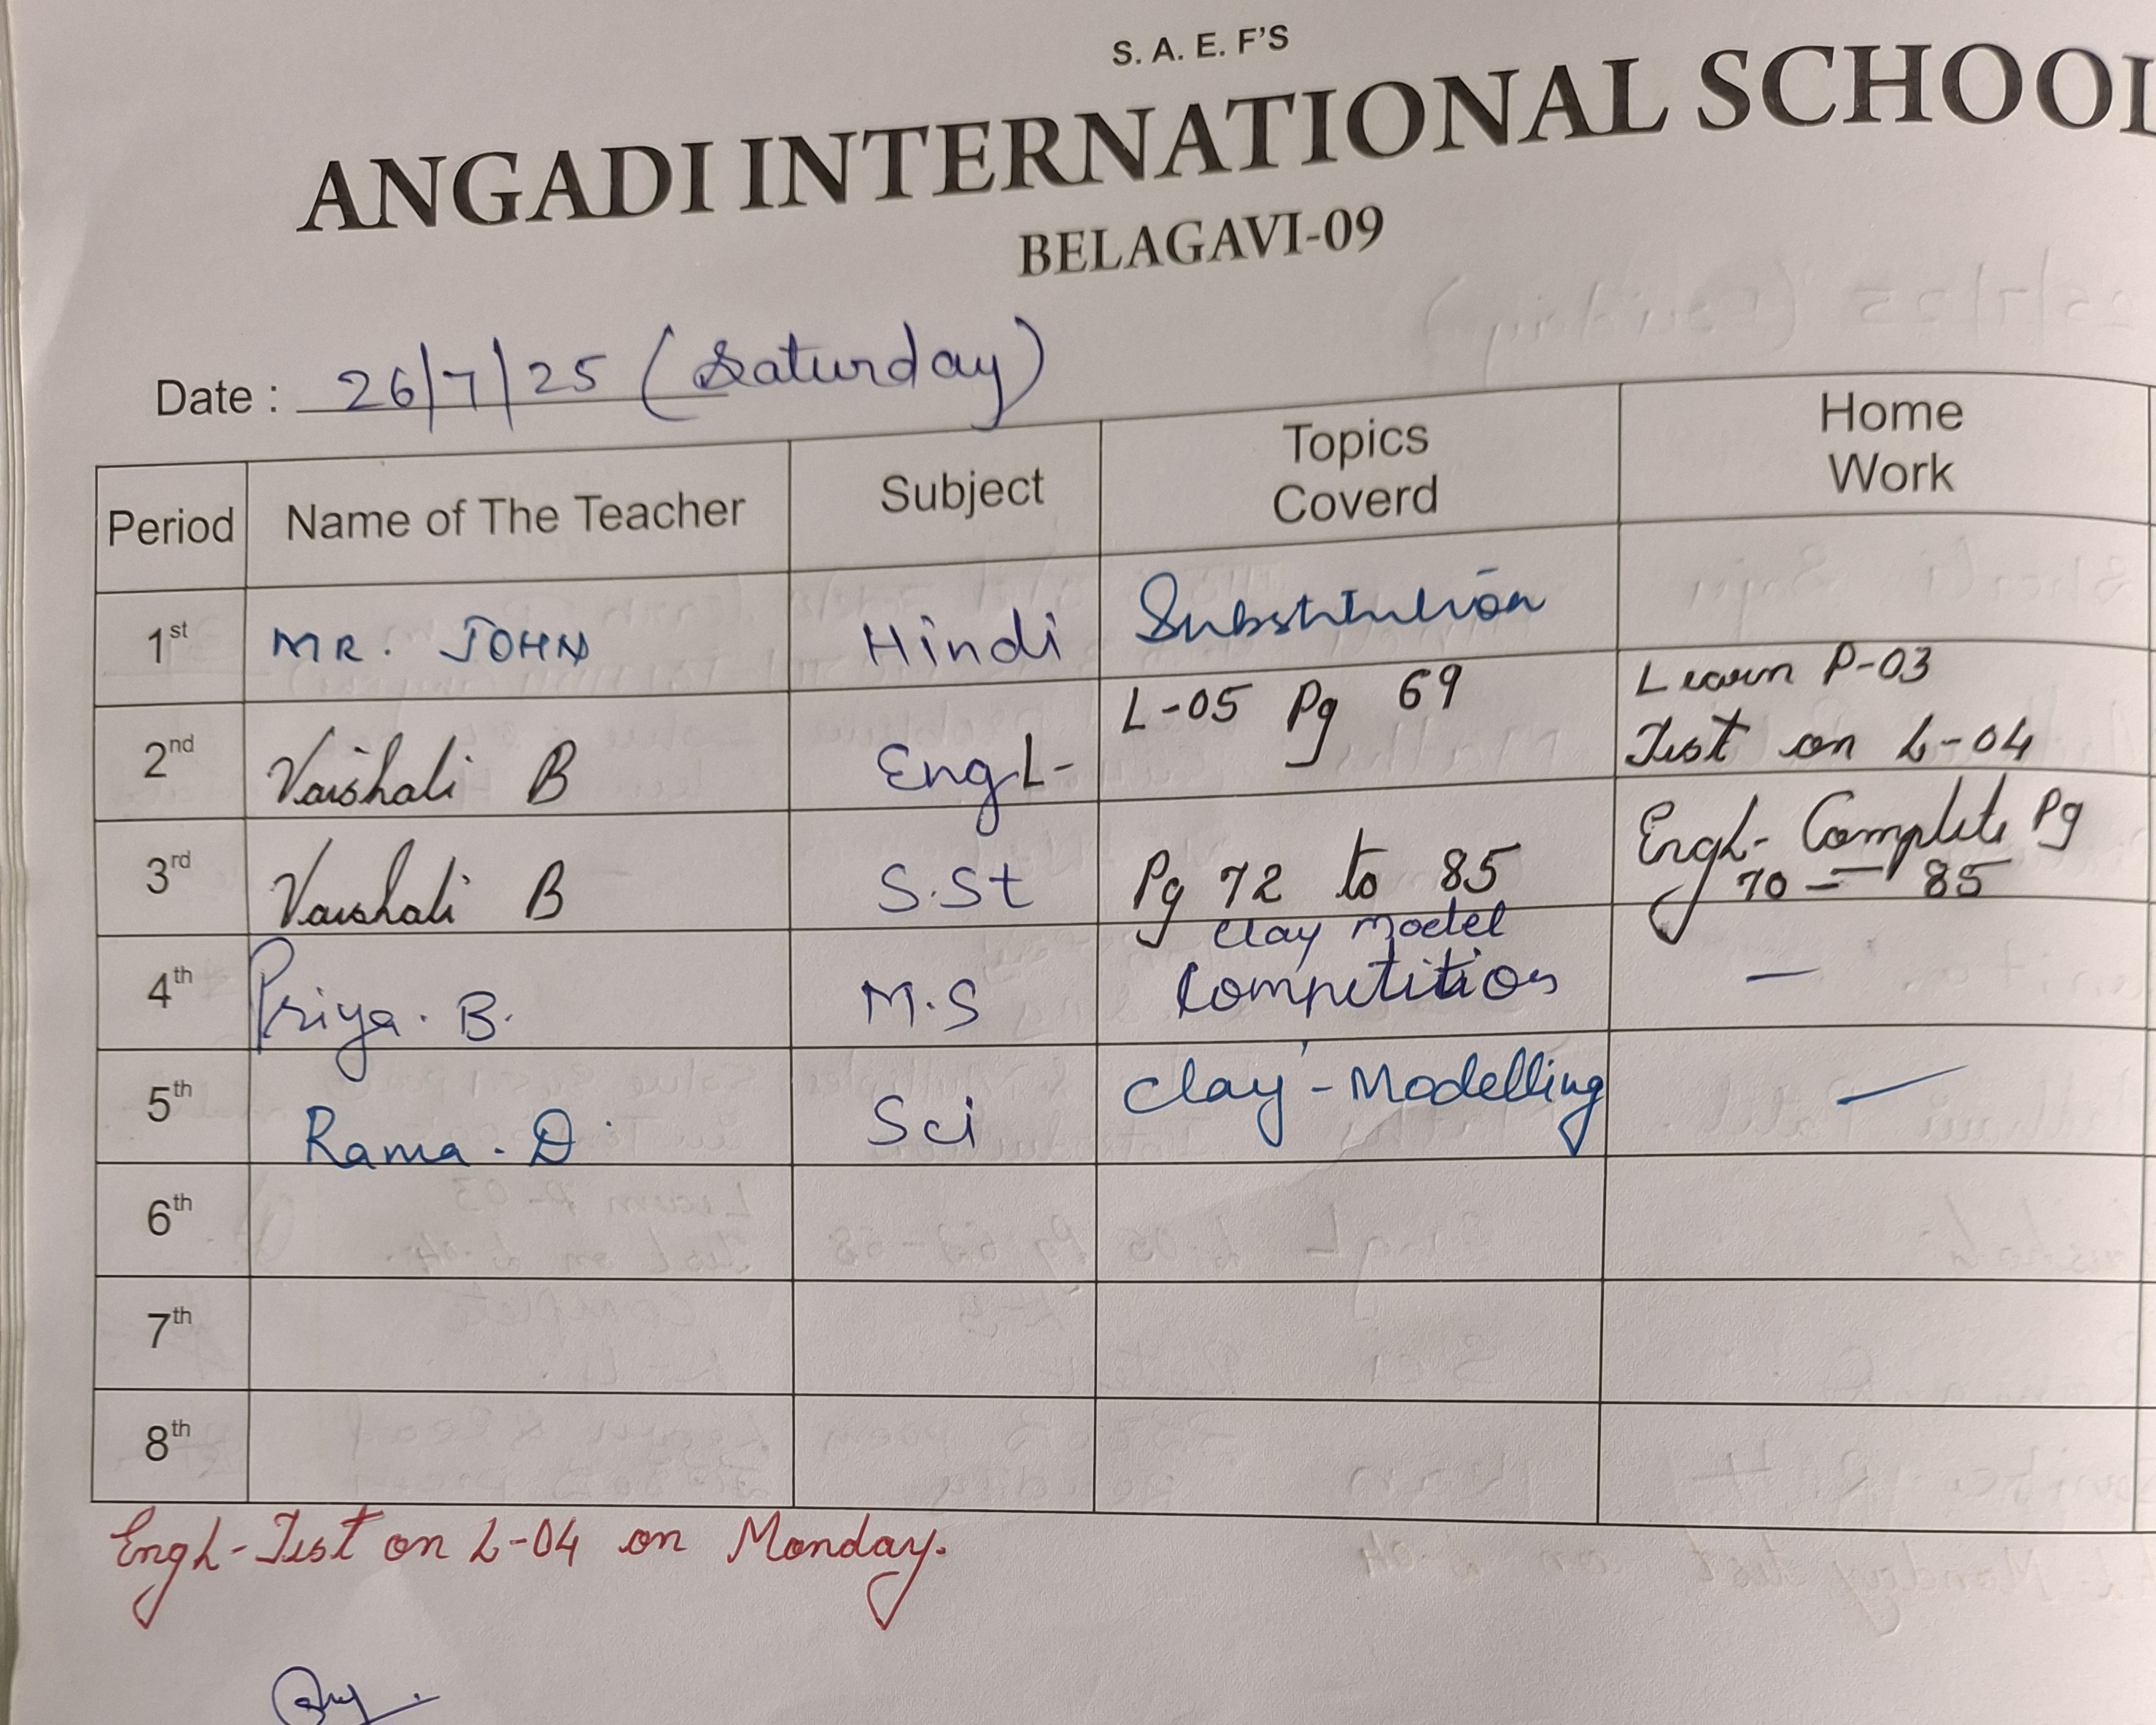 S. A. E. F'S
ANGADI INTERNATIONAL SCHOOL
BELAGAVI-09
Date : 26/7/25 (Saturday)
Period Name of The Teacher Subject Topics Coverd Home Work
1st MR. JOHN Hindi Substitution
2nd Vaishali B Engl- L-05 Pg 69 Learn P-03
Test on L-04
3rd Vaishali B S.St Pg 72 to 85 Engl- Complete Pg
70 - 85
4th Priya. B. M.S Clay Model
Competition —
5th Rama. D. Sci Clay-Modelling —
6th
7th
8th
Engl-Test on L-04 on Monday.